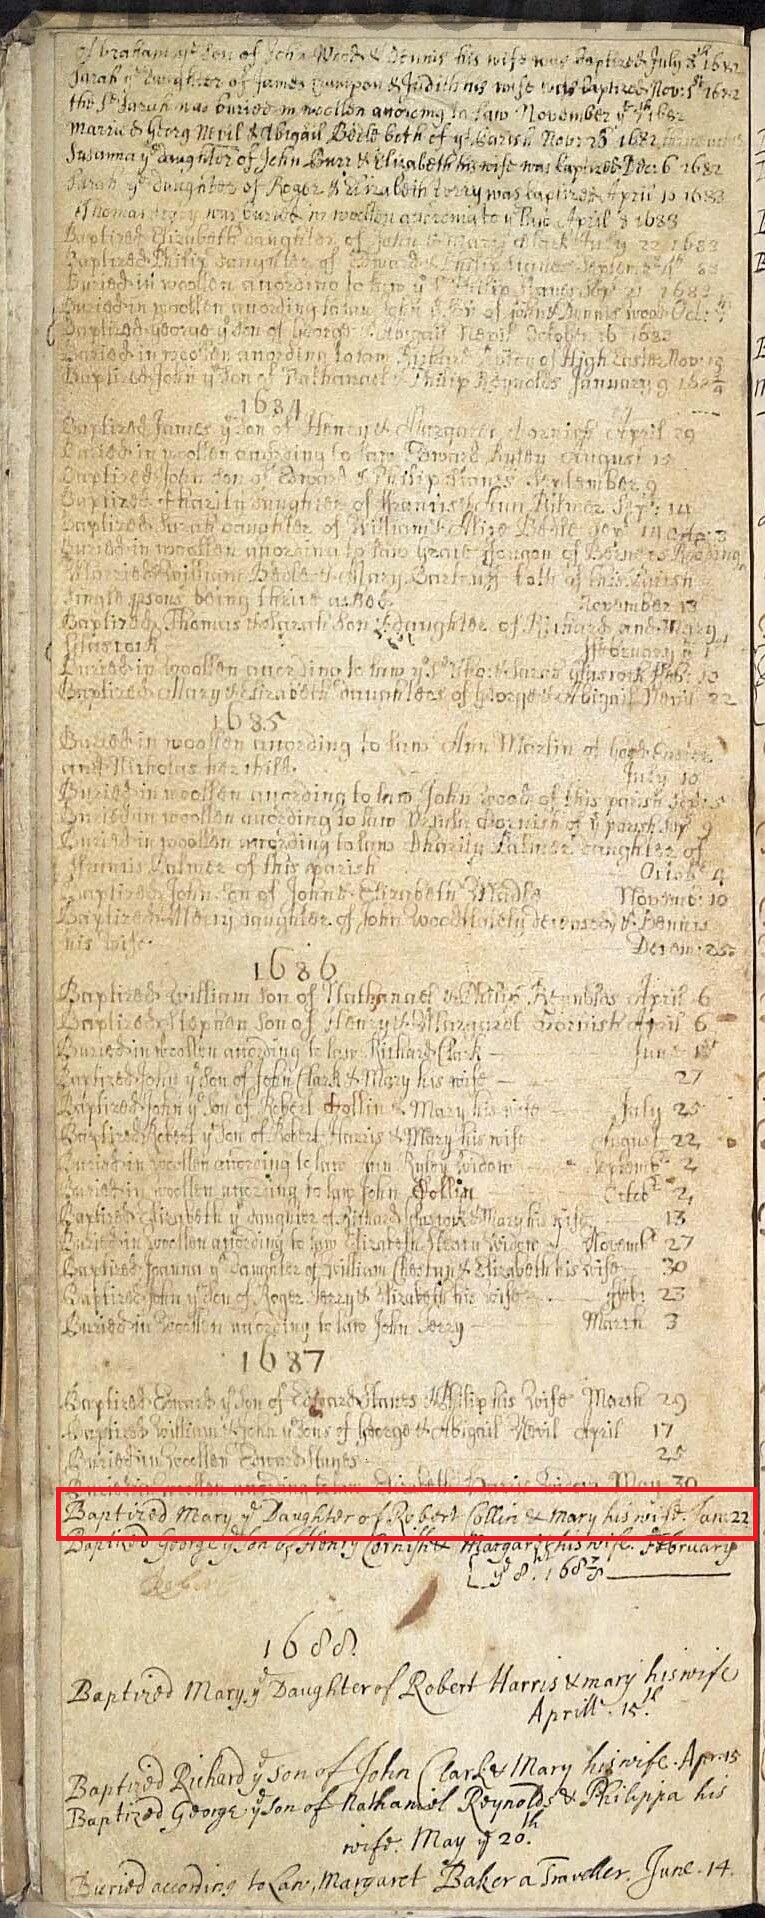 Abraham ye Son of John Wood & Dennis his wife was baptized July 1682
Sarah ye daughter of James & Judith his wife was baptized Nov: 1st 1682
the sd Sarah was buried in woollen acording to law November ye 1682
Married Georg Nevil & Abigail Beele both of ye Parish Nov: 23 1682
Susanna ye daughter of John Burr & Elizabeth his wife was baptized Dec: 6 1682
Sarah ye daughter of Roger & Elizabeth Perry was baptized April 10 1683
Thomas was buried in woollen acording to ye law April 8 1683
Baptized Elizabeth daughter of John & Mary Clark July 22 1683
Baptized Philip daughter of Edward & Philip Stanes Septem: 4th 83
Buried in woollen acording to law ye sd Philip Stanes Sep: 21 1683
Buried in woollen acording to law John ye Son of John & Dennis Wood Oct:
Baptized George ye Son of George & Abigail Nevil October 16 1683
Buried in woollen acording to law Richard of High Easter Nov: 13
Baptized John ye Son of Nathanael & Philip Reynolds January 9 168¾
1684
Baptized James ye Son of Henry & Margaret Cornish April 29
Buried in woollen acording to law Edward August 15
Baptized John Son of Edward & Philip Stanes September 9
Baptized Charity daughter of Francis & Ann Sept: 14
Baptized Sarah daughter of William & Alice Beele Sep: 14
Buried in woollen acording to law Grace of Berners Rooding
Married William Beele & Mary both of this Parish
single psons being thrice asked November 13
Baptized Thomas & Sarah Son & daughter of Richard and Mary
Glascock February ye 1st
Buried in woollen acording to law ye sd Tho: & Sarah Glascock Feb: 10
Baptized Mary & Elizabeth daughters of George & Abigail Nevil 22
1685
Buried in woollen acording to law Ann Martin of good Easter
and Nicholas her child. July 10
Buried in woollen acording to law John Wood of this parish Sep: 5
Buried in woollen acording to law Ursula Cornish of ye parish Sep 9
Buried in woollen acording to law Charity Palmer daughter of
Francis Palmer of this parish Octob: 4
Baptized John Son of John & Elizabeth Madle Novemb: 10
Baptized Merry daughter of John Wood lately deceased & Dennis
his wife. Decem: 25.
1686
Baptized William Son of Nathanael & Philip Reynolds April 6
Baptized Stephen Son of Henry & Margaret Cornish April 6
Buried in woollen acording to law Richard Clark June 1st
Baptized John ye Son of John Clark & Mary his wife 27
Baptized John ye Son of Robert Collin & Mary his wife July 25
Baptized Robert ye Son of Robert Harris & Mary his wife August 22
Buried in woollen acording to law Ann Widow Septemb: 2
Buried in woollen acording to law John Collin Octob: 2
Baptized Elizabeth ye daughter of Richard Glascock & Mary his wife 13
Buried in woollen acording to law Elizabeth Widow Novemb: 27
Baptized Joanna ye Daughter of William & Elizabeth his wife 30
Baptized John ye Son of Roger Perry & Elizabeth his wife Feb: 23
Buried in Woollen acording to law John Perry March 3
1687
Baptized Edward ye Son of Edward Stanes & Philip his Wife March 29
Baptized William & John ye Sons of George & Abigail Nevil April 17
Buried in Woollen Edward Stanes 25
Buried in woollen acording to law Elizabeth Harris Widow May 30
Baptized Mary ye Daughter of Robert Collin & Mary his wife. Jan: 22
Baptized George ye Son of Henry Cornish & Margaret his wife. February
ye 8th 168⅞
1688
Baptized Mary ye Daughter of Robert Harris & mary his wife
Aprill. 15th
Baptized Richard ye son of John Clark & Mary his wife. Apr. 15
Baptized George ye son of Nathaniel Reynolds & Philippa his
wife. May ye 20th.
Buried according to Law, Margaret Baker a Traveller. June. 14.